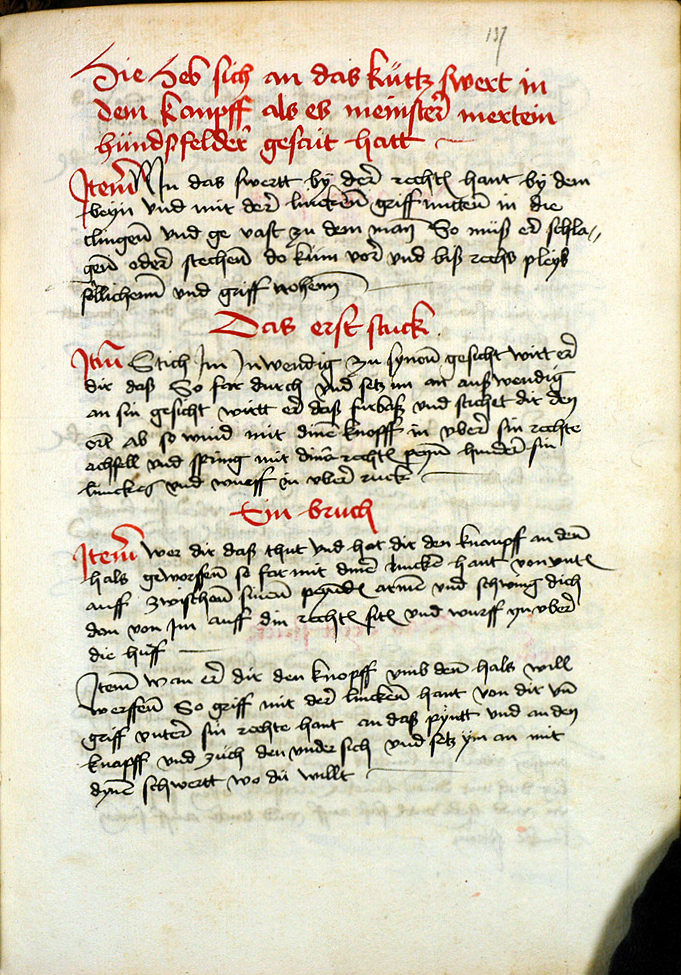 137
Hie Heb sich an das kurtz swert in
dem kanpff als es meinster mertein
hundsfelder gesatt hatt
Item Nim das swertt by der rechten hant by dem
beyn vnd mit der lincken griff mitten in die
clingen vnd ge vast zu dem man So muß er schla„
gen oder stechen do kum vor vnd biß rechs
vnd griff
Das erst stuck
Item Stich Im Inwendig zu synem gesicht wert er
dir daß So far durch vnd setz im an außwendig
an sin gesicht wertt er daß furbaß vnd stichet dir den
ort ab so wind mit dine knopff in vber sin rechte
achsell vnd spring mit dine rechten hunder sin
linckes vnd wurff in vber ruck
Ein bruch
Item wer dir daß thut vnd hat dir den knaupff an den
hals geworffen so far mit diner lincken hant von unten
auff zwischen sinen peyden armen vnd schwing dich
dan von Im auff din rechten siten vnd wurff yn vber
die huff
Item wan er dir den knopff vmb den hals will
werffen So griff mit der lincken hant von dir vnd
griff vnter sin rechte hant an daß pyntt vnd an den
knapff vnd zuch den vnder sich vnd setz ym an mit
dynem schwertt wo du willt